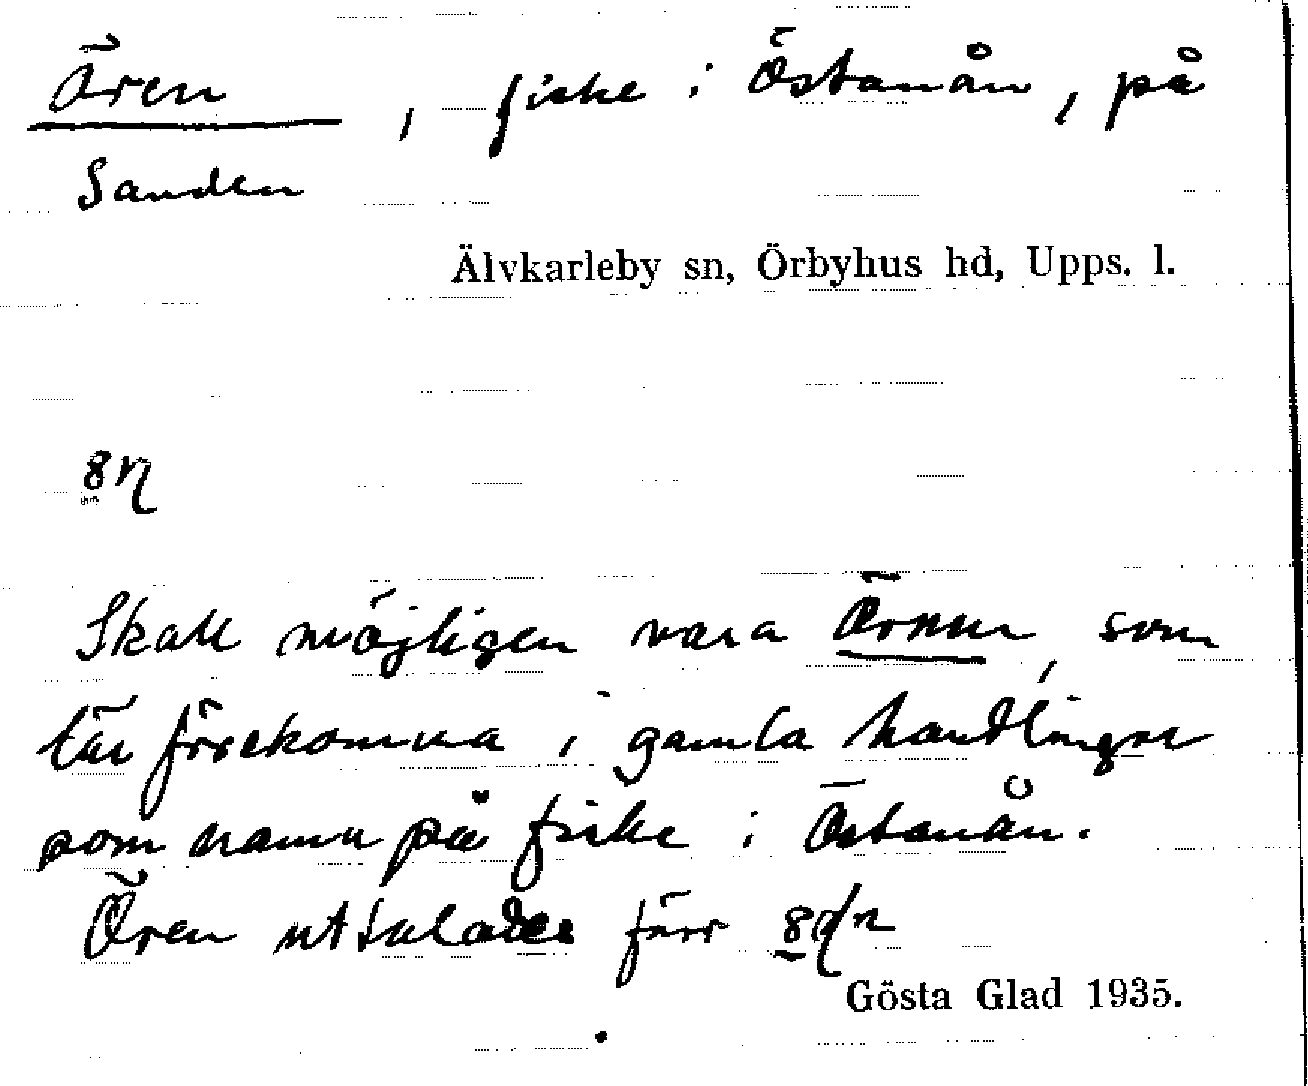 Ören, fiske i Östanån, på
Sanden
Älvkarleby sn, Örbyhus hd, Upps. l.
Skall möjligen vara Örnen, som
lär förekomma i gamla handlingar
som namn på fiske i Östanån.
Ören uttalades förr
Gösta Glad 1935.